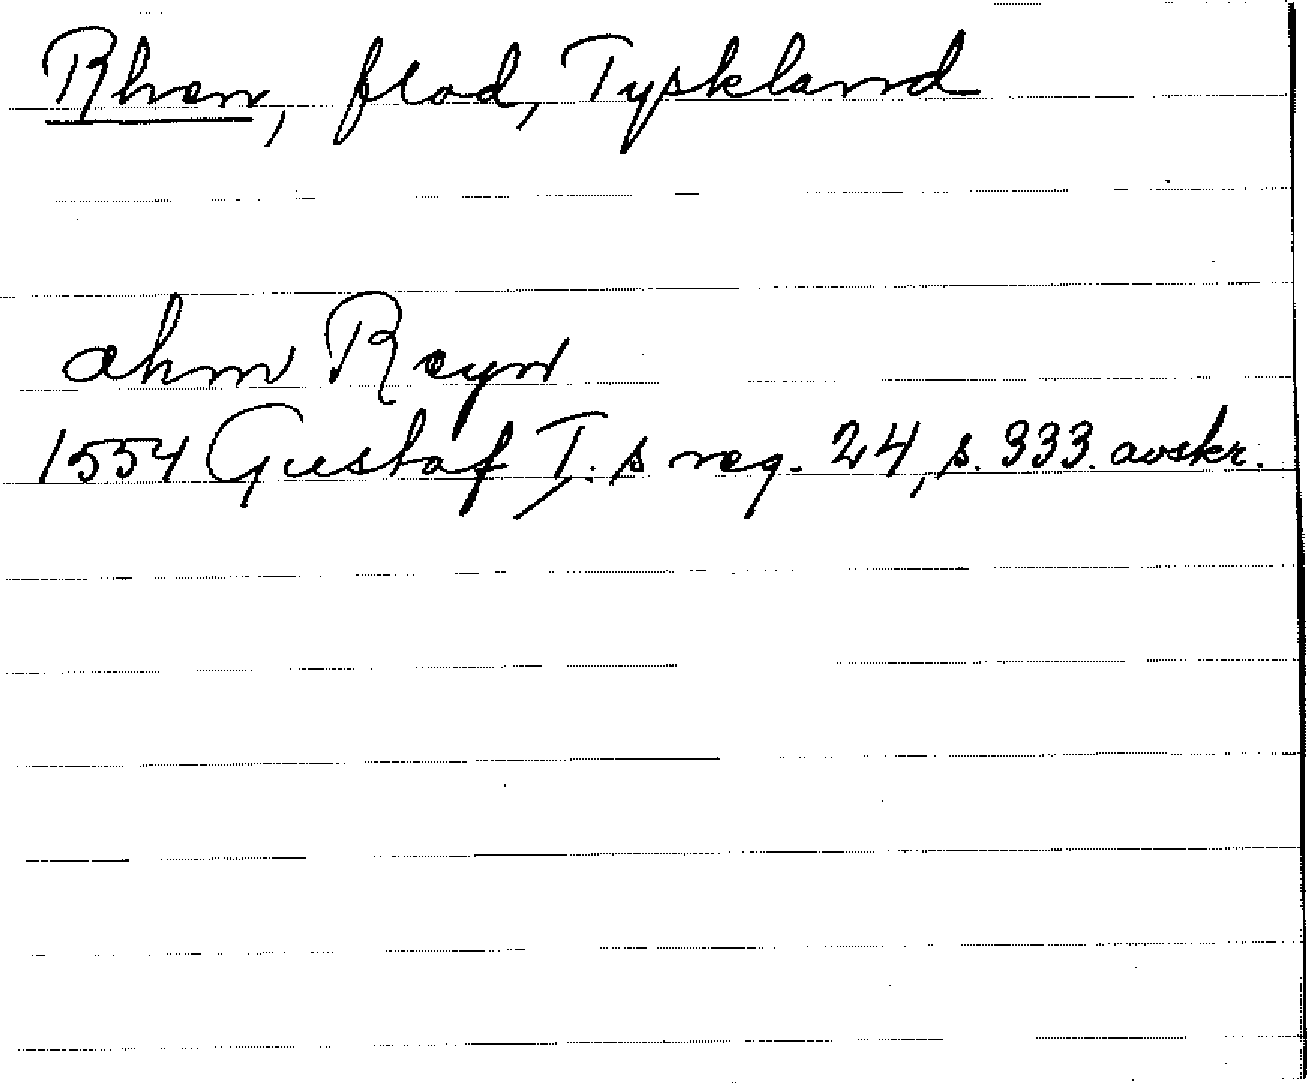 Rhen, flod, Tyskland
ahm Reyn
1554 Gustaf I. s reg. 24, s. 333. avskr.